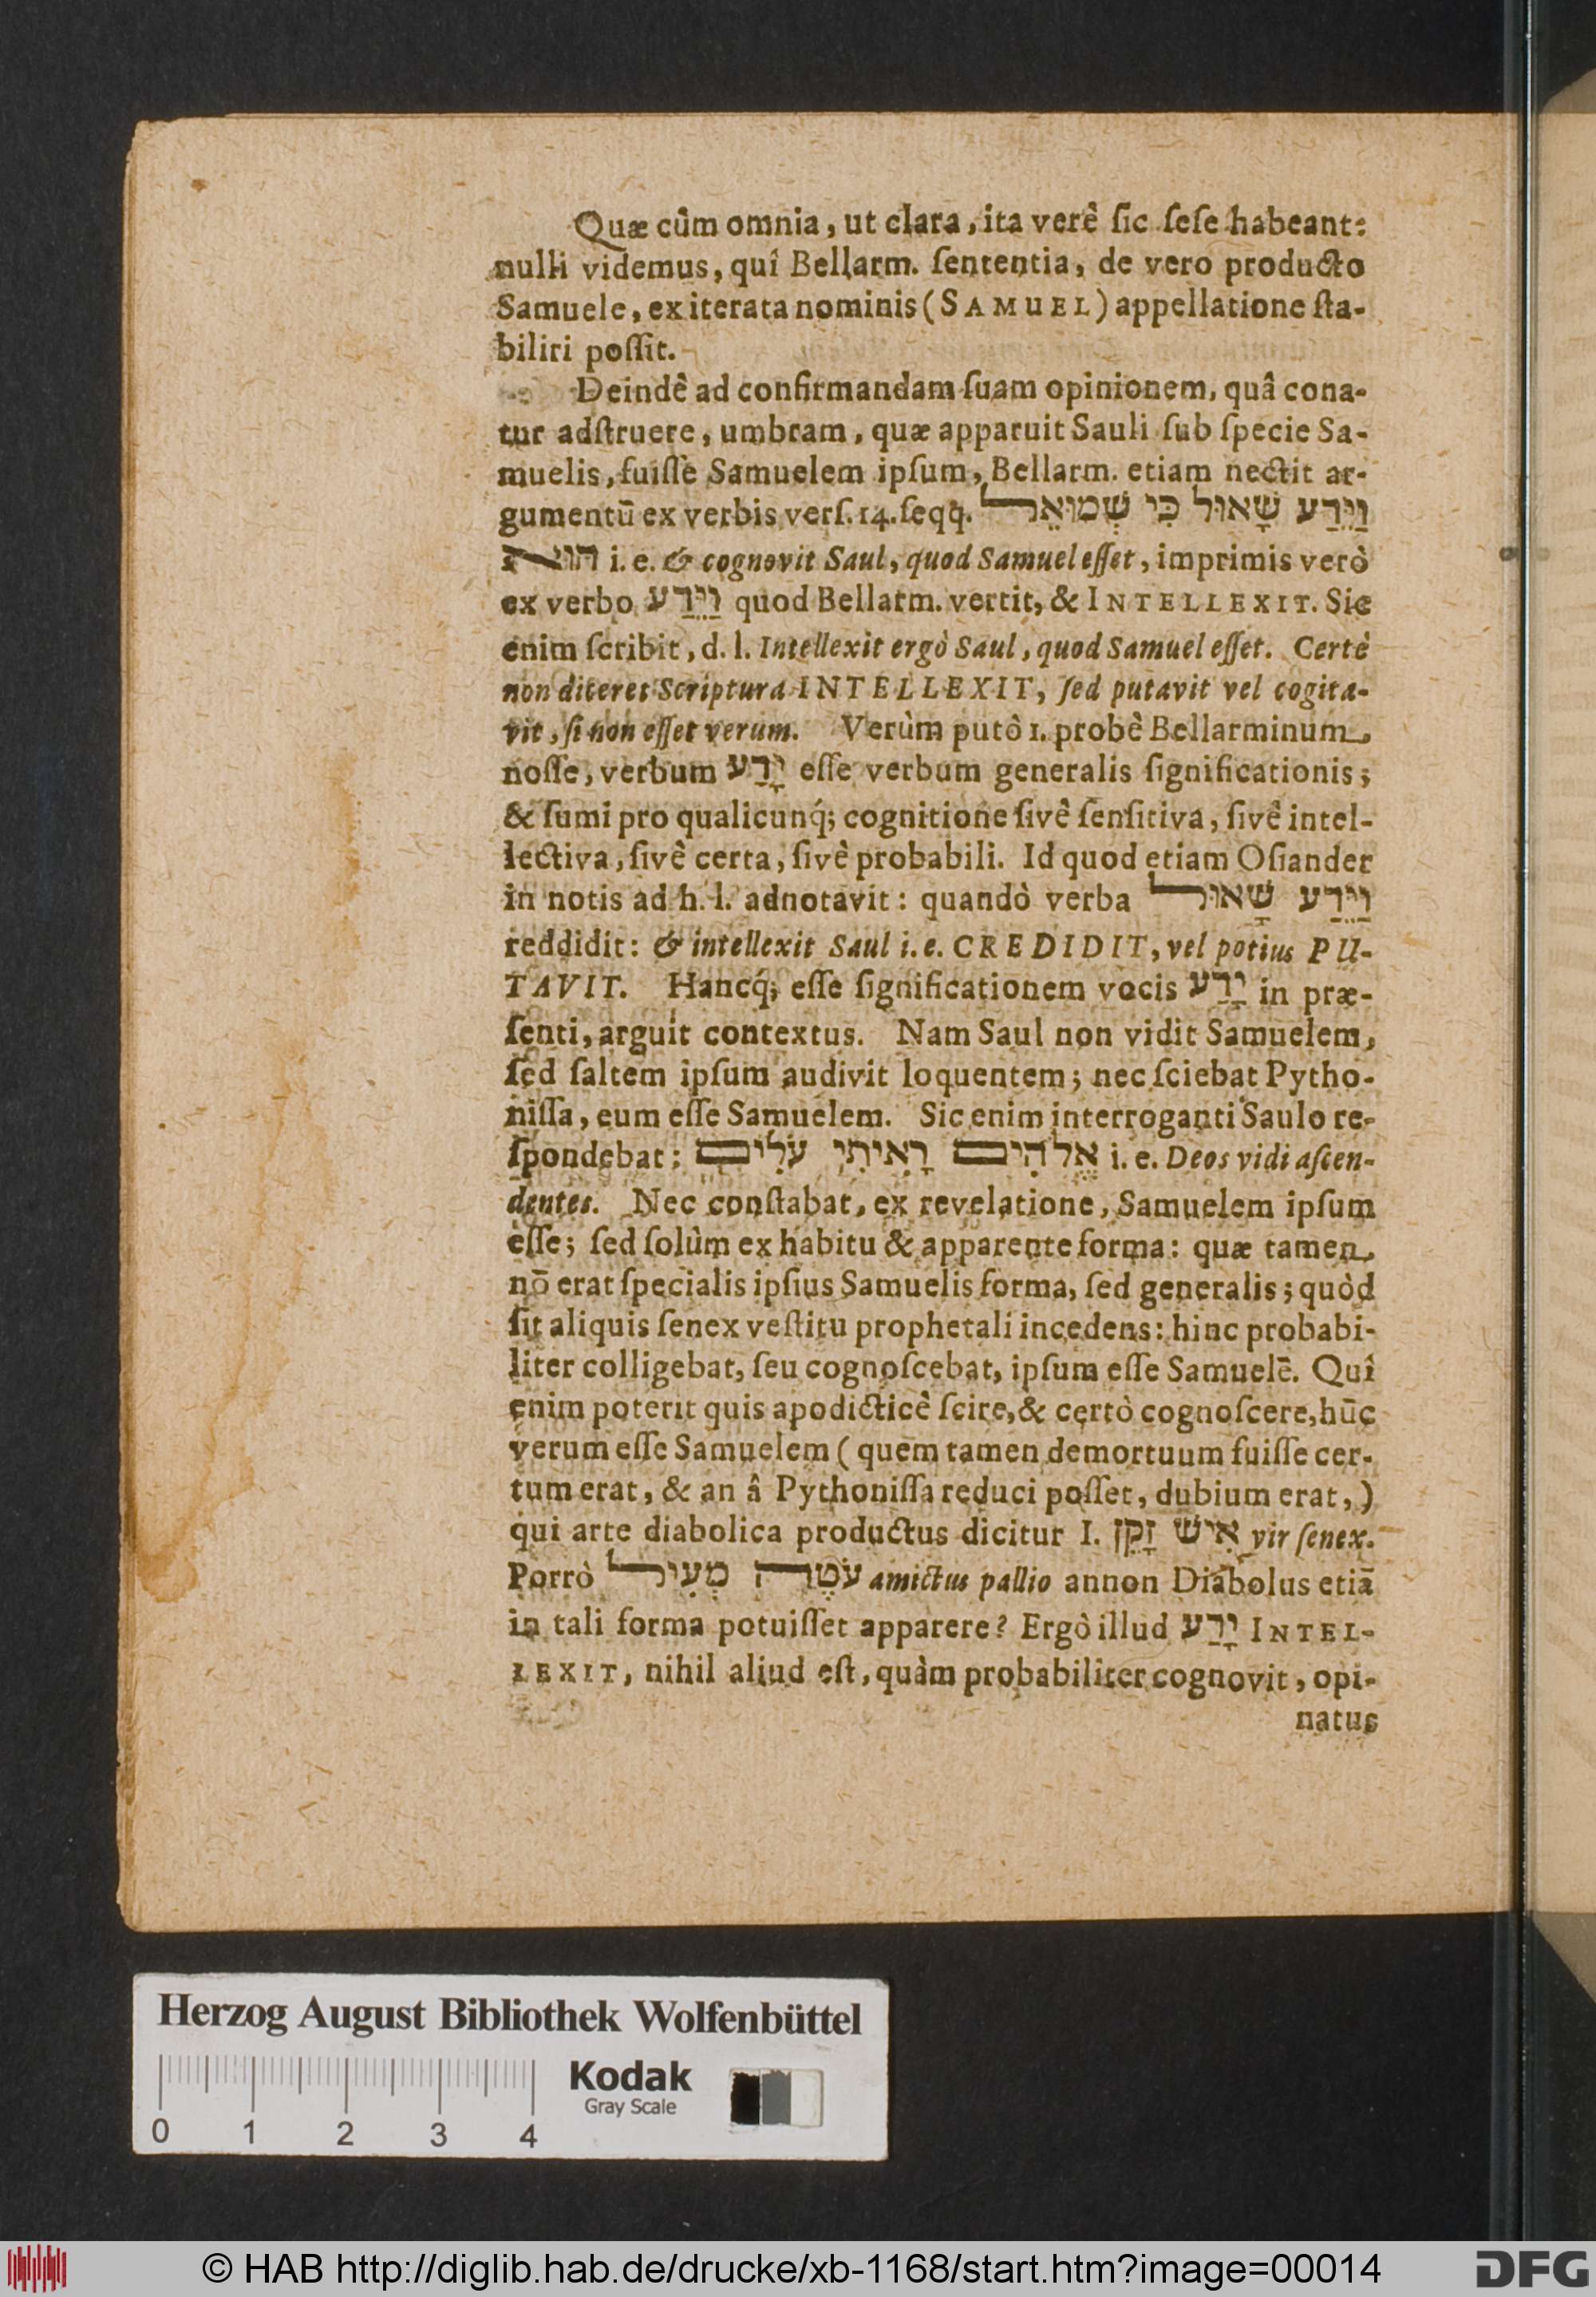 Quæ cûm omnia, ut clara, ita verê ſic ſeſe habeant:
nulli videmus, quî Bellarm. ſententia, de vero producto
Samuele, ex iterata nominis (SAMUEL) appellatione ſta-
biliri poſſit.
Deindê ad confirmandam ſuam opinionem, quâ cona-
tur adſtruere, umbram, quæ apparuit Sauli ſub ſpecie Sa-
muelis, fuiſſe Samuelem ipſum, Bellarm. etiam nectit ar-
gumentū ex verbis verſ. 14. ſeqq. וַיֵּדַע שָׁאוּל כִּי שְׁמוּאֵל
הוּא i. e. & cognovit Saul, quod Samuel eſſet, imprimis verò
ex verbo וַיֵּדַע quod Bellarm. vertit, & INTELLEXIT. Sic
enim ſcribit, d. l. Intellexit ergò Saul, quod Samuel eſſet. Certè
non diceret Scriptura INTELLEXIT, ſed putavit vel cogita-
vit, ſi non eſſet verum. Verùm putô 1. probê Bellarminum
noſſe, verbum יָדַע eſſe verbum generalis ſignificationis;
& ſumi pro qualicunq́; cognitione ſivê ſenſitiva, ſivê intel-
lectiva, ſivê certa, ſivê probabili. Id quod etiam Oſiander
in notis ad h. l. adnotavit: quandò verba וַיֵּדַע שָׁאוּל
reddidit: & intellexit Saul i. e. CREDIDIT, vel potius PU-
TAVIT. Hancq́; eſſe ſignificationem vocis יָדַע in præ-
ſenti, arguit contextus. Nam Saul non vidit Samuelem,
ſed ſaltem ipſum audivit loquentem; nec ſciebat Pytho-
niſſa, eum eſſe Samuelem. Sic enim interroganti Saulo re-
ſpondebat: אֱלֹהִים רָאִיתִי עֹלִים i. e. Deos vidi aſcen-
dentes. Nec conſtabat, ex revelatione, Samuelem ipſum
eſſe; ſed ſolùm ex habitu & apparente forma: quæ tamen
nō erat ſpecialis ipſius Samuelis forma, ſed generalis; quòd
ſit aliquis ſenex veſtitu prophetali incedens: hinc probabi-
liter colligebat, ſeu cognoſcebat, ipſum eſſe Samuelē. Quî
enim poterit quis apodicticê ſcire, & certò cognoſcere, hūc
verum eſſe Samuelem (quem tamen demortuum fuiſſe cer-
tum erat, & an â Pythoniſſa reduci poſſet, dubium erat,)
qui arte diabolica productus dicitur I. אִישׁ זָקֵן vir ſenex.
Porrò עֹטֶה מְעִיל amictus pallio annon Diabolus etiā
in tali forma potuiſſet apparere? Ergò illud יָדַע INTEL-
LEXIT, nihil aliud eſt, quàm probabiliter cognovit, opi-
natus
Herzog August Bibliothek Wolfenbüttel
Kodak
Gray Scale
0 1 2 3 4
© HAB http://diglib.hab.de/drucke/xb-1168/start.htm?image=00014
DFG